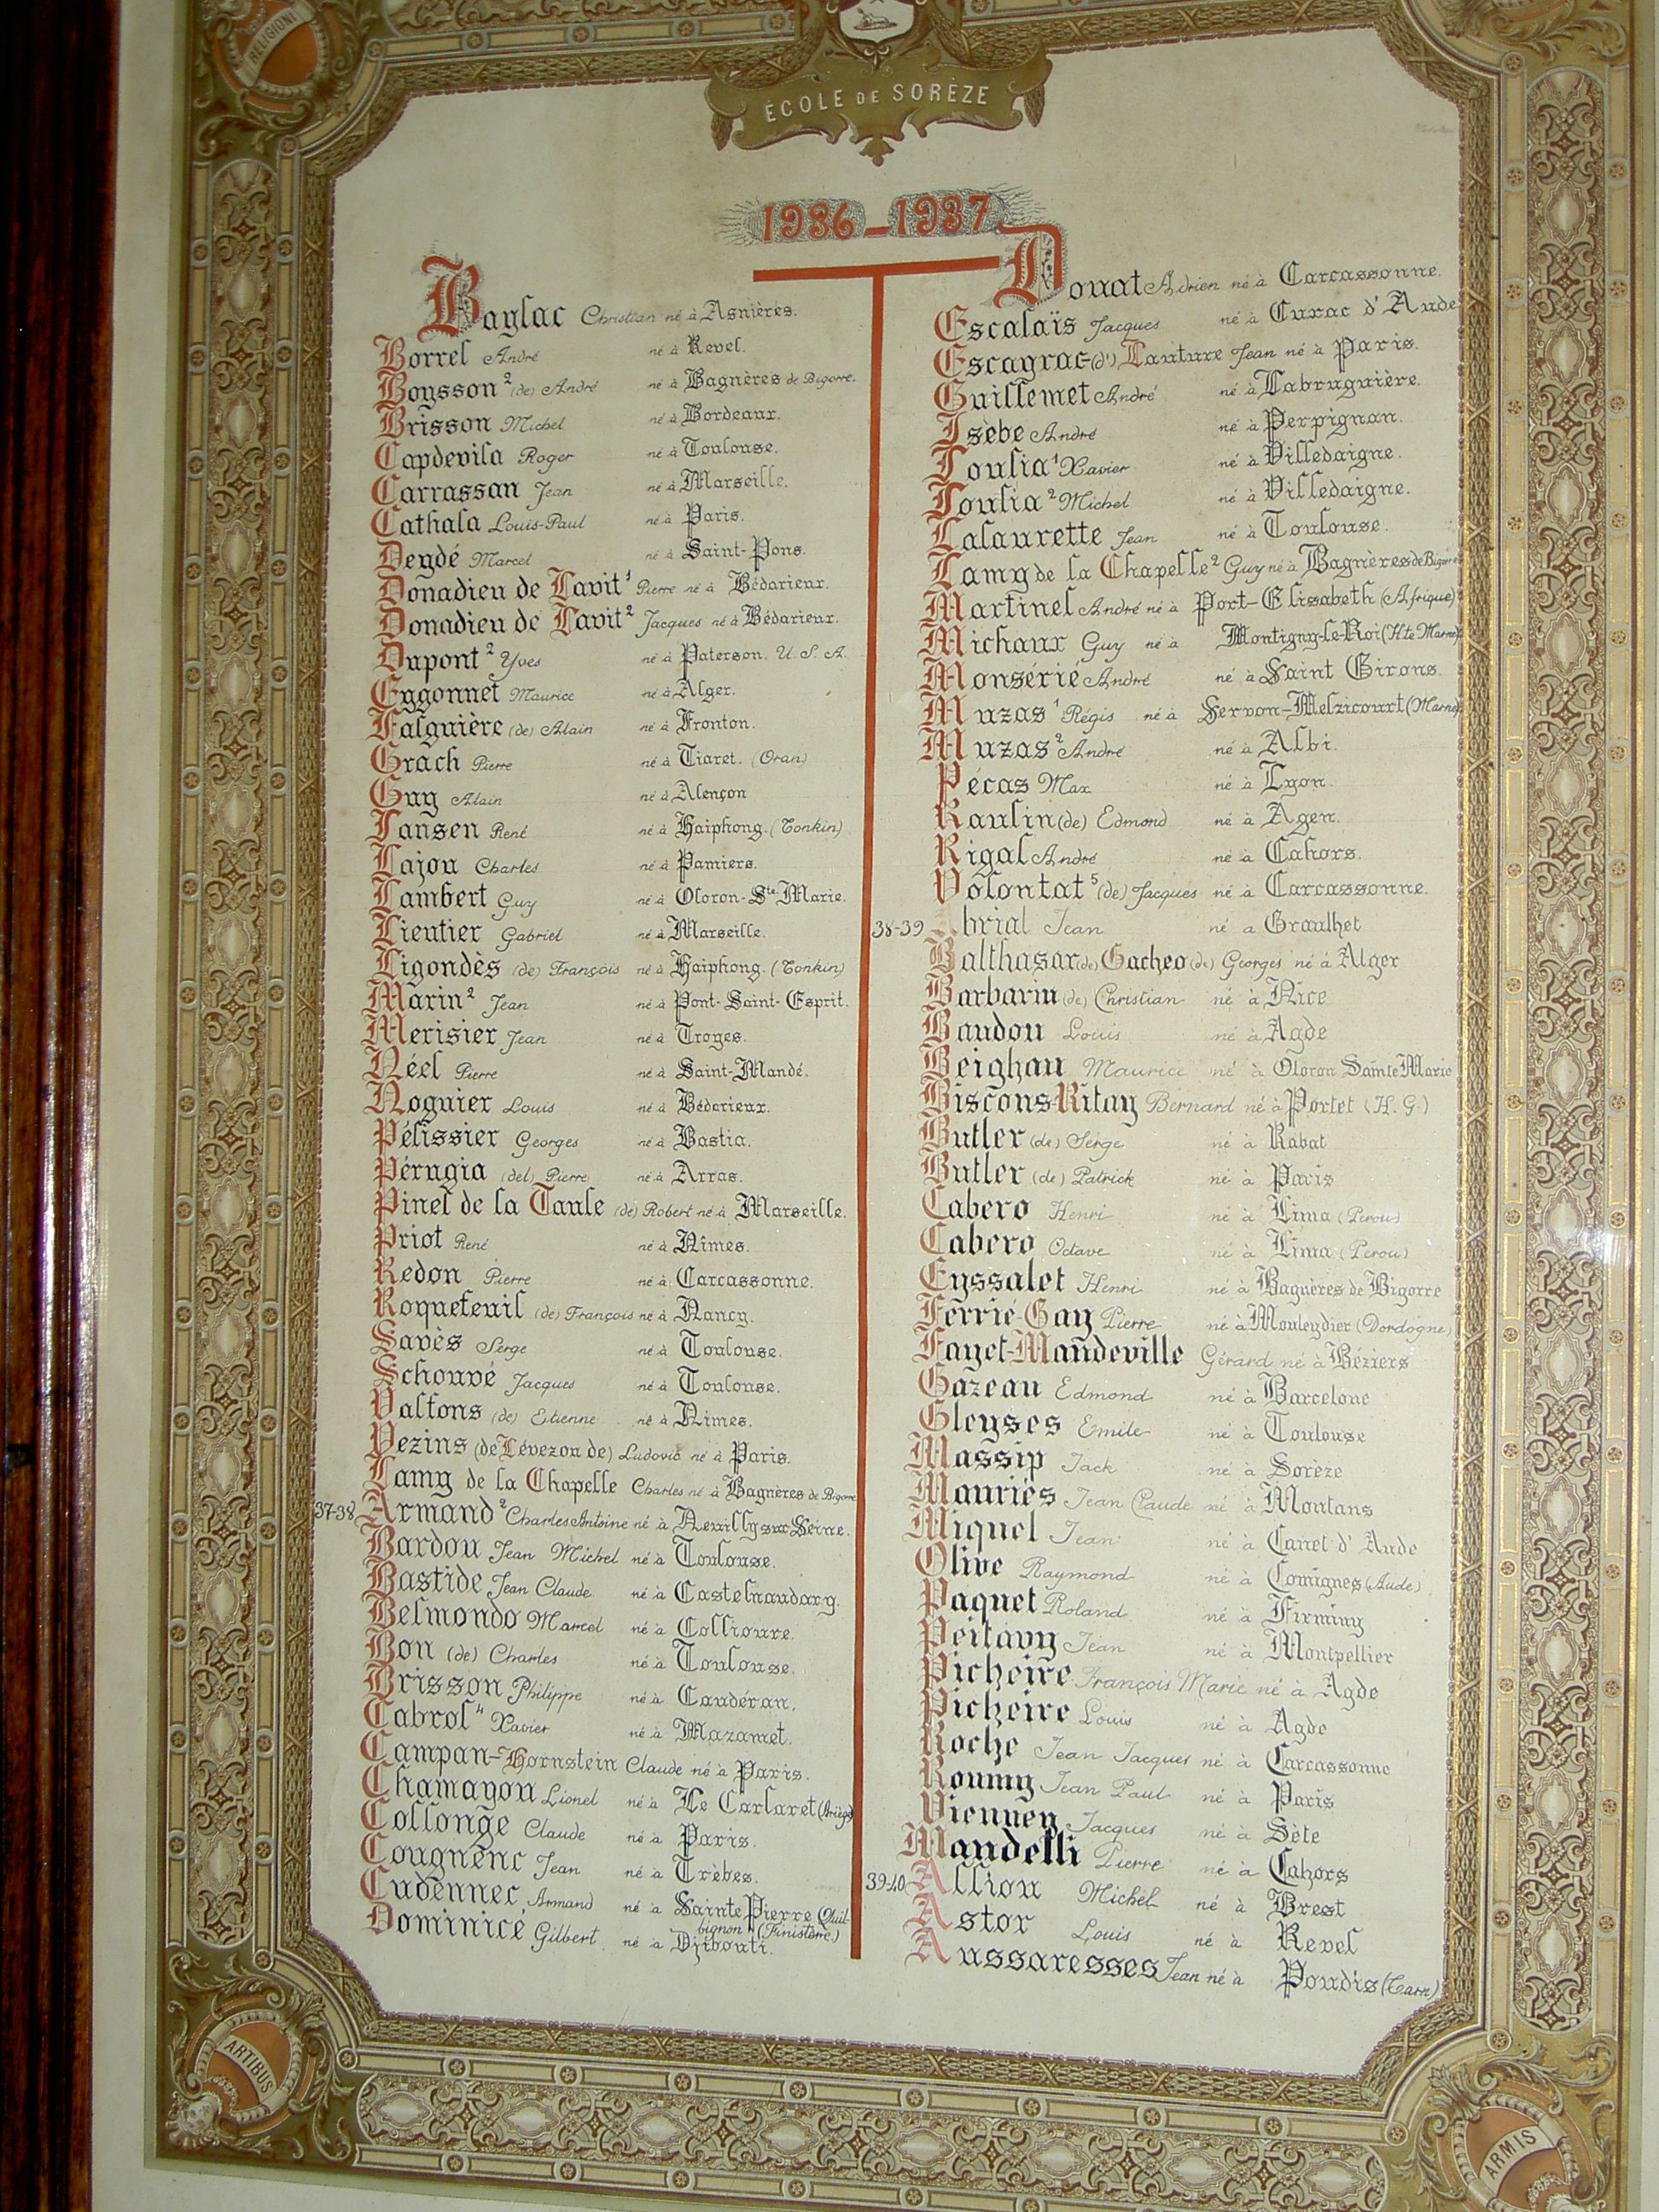 RELIGIONI
ÉCOLE DE SORÈZE
1936-1937
Baylac Christian né à Asnières.
Borrel André né à Revel.
Boysson ² (de) André né à Bagnères de Bigorre.
Brisson Michel né à Bordeaux.
Capdevila Roger né à Toulouse.
Carrassan Jean né à Marseille.
Cathala Louis-Paul né à Paris.
Deydé Marcel né à Saint-Pons.
Donadieu de Lavit ¹ Pierre né à Bédarieux.
Donadieu de Lavit ² Jacques né à Bédarieux.
Dupont ² Yves né à Paterson. U.S.A.
Eggonnet Maurice né à Alger.
Falguière (de) Alain né à Fronton.
Grach Pierre né à Tiaret. (Oran)
Guy Alain né à Alençon
Jansen René né à Haiphong. (Tonkin)
Lajou Charles né à Pamiers.
Lambert Guy né à Oloron-Ste-Marie.
Lieutier Gabriel né à Marseille.
Ligondès (de) François né à Haiphong. (Tonkin)
Marin ² Jean né à Pont-Saint-Esprit.
Merisier Jean né à Troyes.
Néel Pierre né à Saint-Mandé.
Noguier Louis né à Bédarieux.
Pélissier Georges né à Bastia.
Pérugia (del) Pierre né à Arras.
Pinel de la Taule (de) Robert né à Marseille.
Priot René né à Nîmes.
Redon Pierre né à Carcassonne.
Roquefeuil (de) François né à Nancy.
Savès Serge né à Toulouse.
Schouvé Jacques né à Toulouse.
Valfons (de) Etienne né à Nîmes.
Vezins (de Lévezou de) Ludovic né à Paris.
Lamy de la Chapelle Charles né à Bagnères de Bigorre
37-38 Armand ² Charles Antoine né à Neuilly sur Seine.
Bardou Jean Michel né à Toulouse.
Bastide Jean Claude né à Castelnaudary.
Belmondo Marcel né à Collioure.
Bon (de) Charles né à Toulouse.
Brisson Philippe né à Caudéran.
Cabrol ⁴ Xavier né à Mazamet.
Campan-Hornstein Claude né à Paris.
Chamayou Lionel né à Le Carlaret (Ariège)
Collonge Claude né à Paris.
Cougnenc Jean né à Trèbes.
Cudennec Armand né à Sainte Pierre Quil-
bignon (Finistère.)
Dominicé Gilbert né à Djibouti.
Donat Adrien né à Carcassonne.
Escalaïs Jacques né à Cuxac d'Aude
Escayrac (d') Lauture Jean né à Paris.
Guillemet André né à Labruguière.
Isèbe André né à Perpignan.
Joulia ¹ Xavier né à Villedaigne.
Joulia ² Michel né à Villedaigne.
Lalaurette Jean né à Toulouse.
Lamy de la Chapelle ² Guy né à Bagnères de Bigorre
Martinel André né à Port-Elisabeth (Afrique)
Michaux Guy né à Montigny-le-Roi (Hte Marne)
Monsérié André né à Saint Girons.
Muzas ¹ Régis né à Servon-Melzicourt (Marne)
Muzas ² André né à Albi.
Pécas Max né à Lyon.
Raulin (de) Edmond né à Agen.
Rigal André né à Cahors.
Volontat ⁵ (de) Jacques né à Carcassonne.
38-39 Abrial Jean né à Graulhet
Balthasar (de) Gacheo (de) Georges né à Alger
Barbarin (de) Christian né à Nice
Baudou Louis né à Agde
Beighau Maurice né à Oloron Sainte Marie
Biscons-Ritay Bernard né à Portet (H.G.)
Butler (de) Serge né à Rabat
Butler (de) Patrick né à Paris
Cabero Henri né à Lima (Perou)
Cabero Octave né à Lima (Perou)
Eyssalet Henri né à Bagnères de Bigorre
Ferrie-Gay Pierre né à Mouleydier (Dordogne)
Fayet-Mandeville Gérard né à Béziers
Gazeau Edmond né à Barcelone
Gleyses Emile né à Toulouse
Massip Jack né à Sorèze
Mauriès Jean Claude né à Montans
Miquel Jean né à Canet d'Aude
Olive Raymond né à Comignes (Aude)
Paquet Roland né à Firminy
Peitavy Jean né à Montpellier
Picheire François Marie né à Agde
Picheire Louis né à Agde
Roche Jean Jacques né à Carcassonne
Roumy Jean Paul né à Paris
Vienney Jacques né à Sète
Mandelli Pierre né à Cahors
39-40 Alliou Michel né à Brest
Astor Louis né à Revel
Aussaresses Jean né à Poudis (Tarn)
ARTIBUS
ARMIS